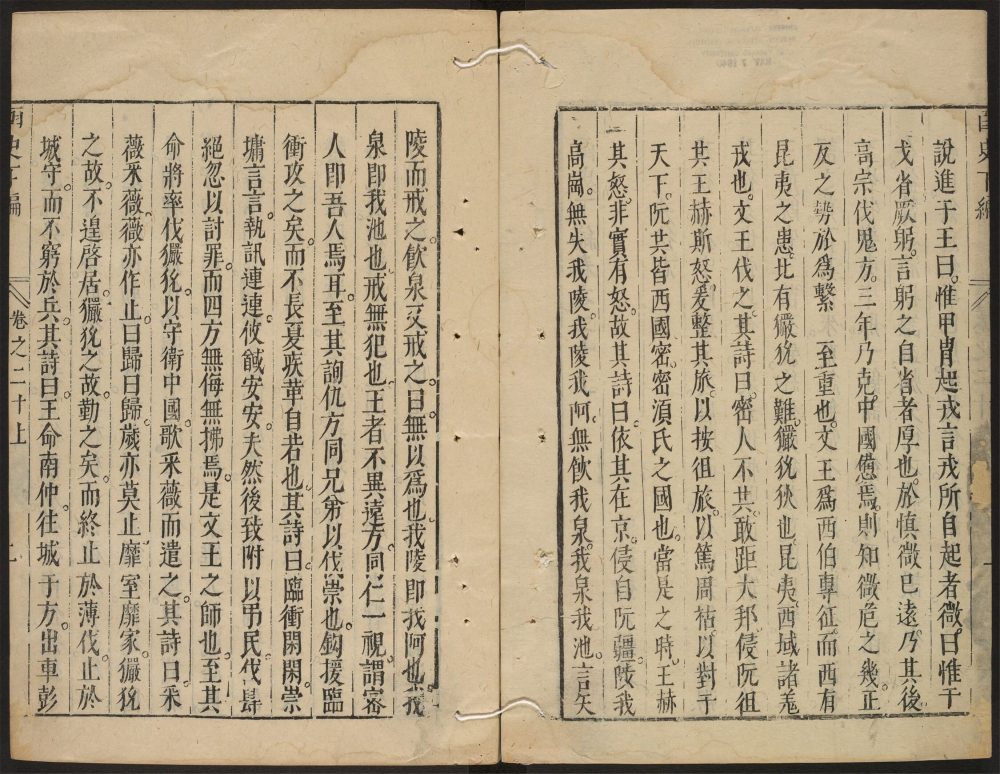 說進于王曰。惟甲冑起戎言戎所自起者微。曰惟干
戈省厥躬。言躬之自省者厚也。於慎微已遠。乃其後
高宗伐鬼方。三年乃克。中國憊焉。則知微危之幾。正
反之勢。於爲繫 至重也。文王爲西伯專征。而西有
昆夷之患。北有玁狁之難。玁狁狄也。昆夷。西域諸羌
戎也。文王伐之。其詩曰。密人不共。敢距大邦。侵阮徂
共。王赫斯怒。爰整其旅。以按徂旅。以篤周祜。以對于
天下。阮共皆西國。密。密須氏之國也。當是之時。王赫
其怒。非實有怒。故其詩曰。依其在京。侵自阮疆。陵我
高崗。無矢我陵。我陵我阿。無飲我泉。我泉我池。言矢
陵而戒之。飲泉又戒之。曰無以爲也。我陵 卽我阿也。我
泉卽我池也。戒無犯也。王者不異遠方。同仁一視。謂密
人卽吾人焉耳。至其詢仇方同兄弟以伐崇也。鈎援臨
衝攻之矣。而不長夏張革自若也。其詩曰。臨衝閑閑。崇
墉言言。執訊連連。攸馘安安。夫然後致附 以弔民。伐肆
絕忽以討罪。而四方無侮無拂焉。是文王之師也。至其
命將率伐玁狁。以守衛中國。歌采薇而遣之。其詩曰。采
薇采薇。薇亦作止。曰歸曰歸。歲亦莫止。靡室靡家。玁狁
之故。不遑啓居。玁狁之故。勤之矣。而終止 於薄伐。止於
城守。而不窮於兵。其詩曰。王命南仲。往城 于方。出車彭
卷之二十上